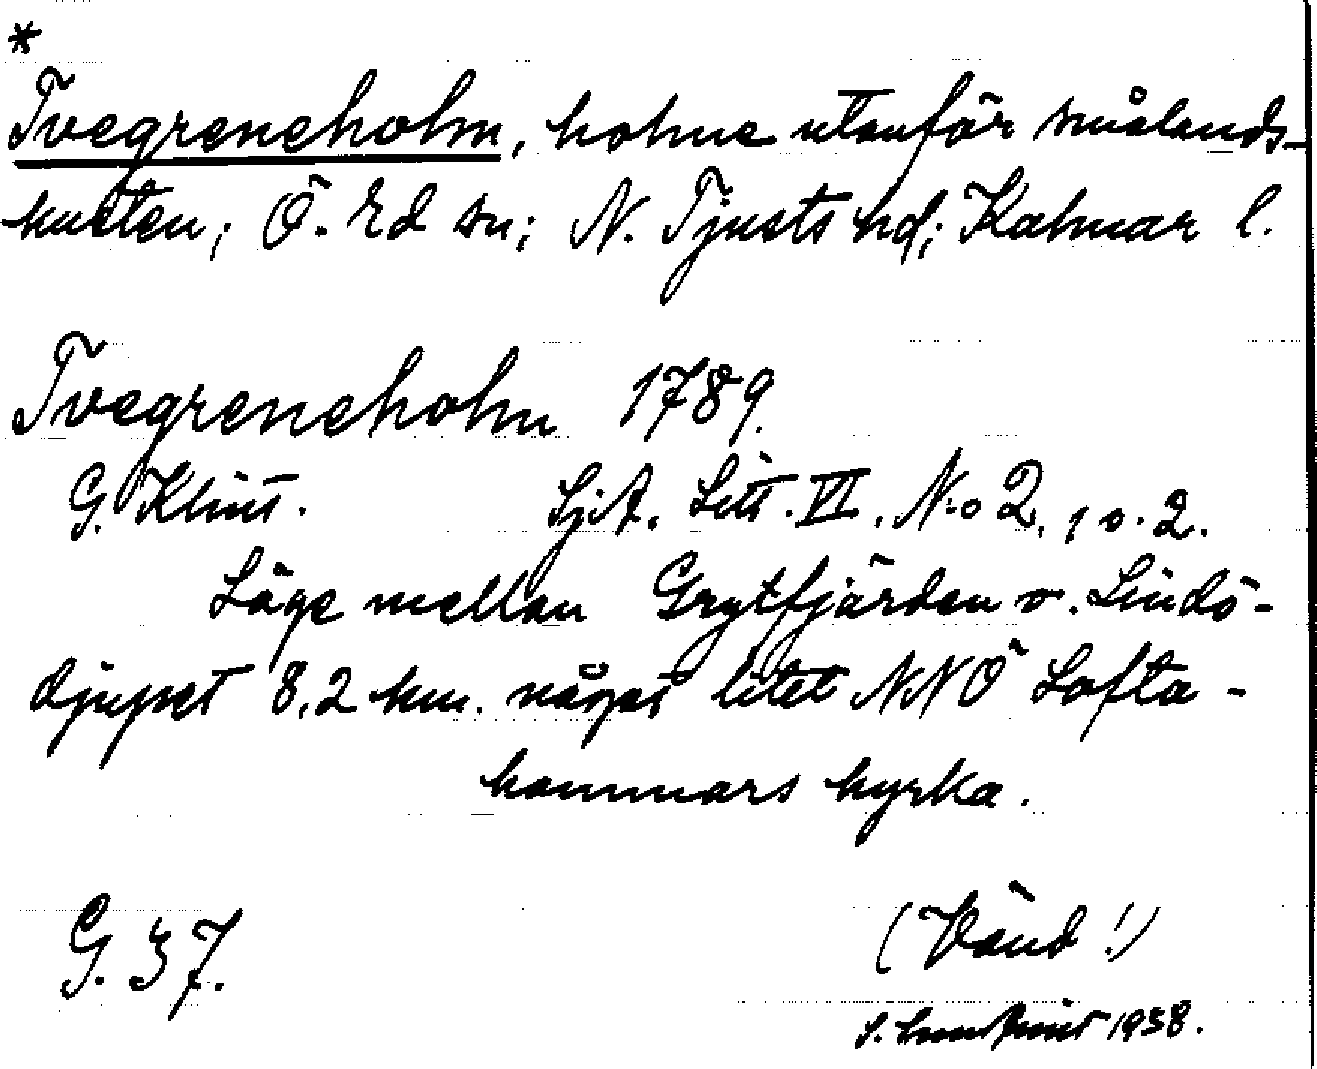 *
Tvegreneholm, holme utanför smålands-
kusten; Ö. Ed sn; N. Tjusts hd; Kalmar l.
Tvegreneholm 1789.
G. Klint. SjA. Litt. VI. No 2, 1 o. 2.
Läge mellan Grytfjärden o. Lindö-
djupet 8,2 km. något litet NNÖ Lofta-
hammars kyrka.
G. 37. (Vänd!)
S. 1938.